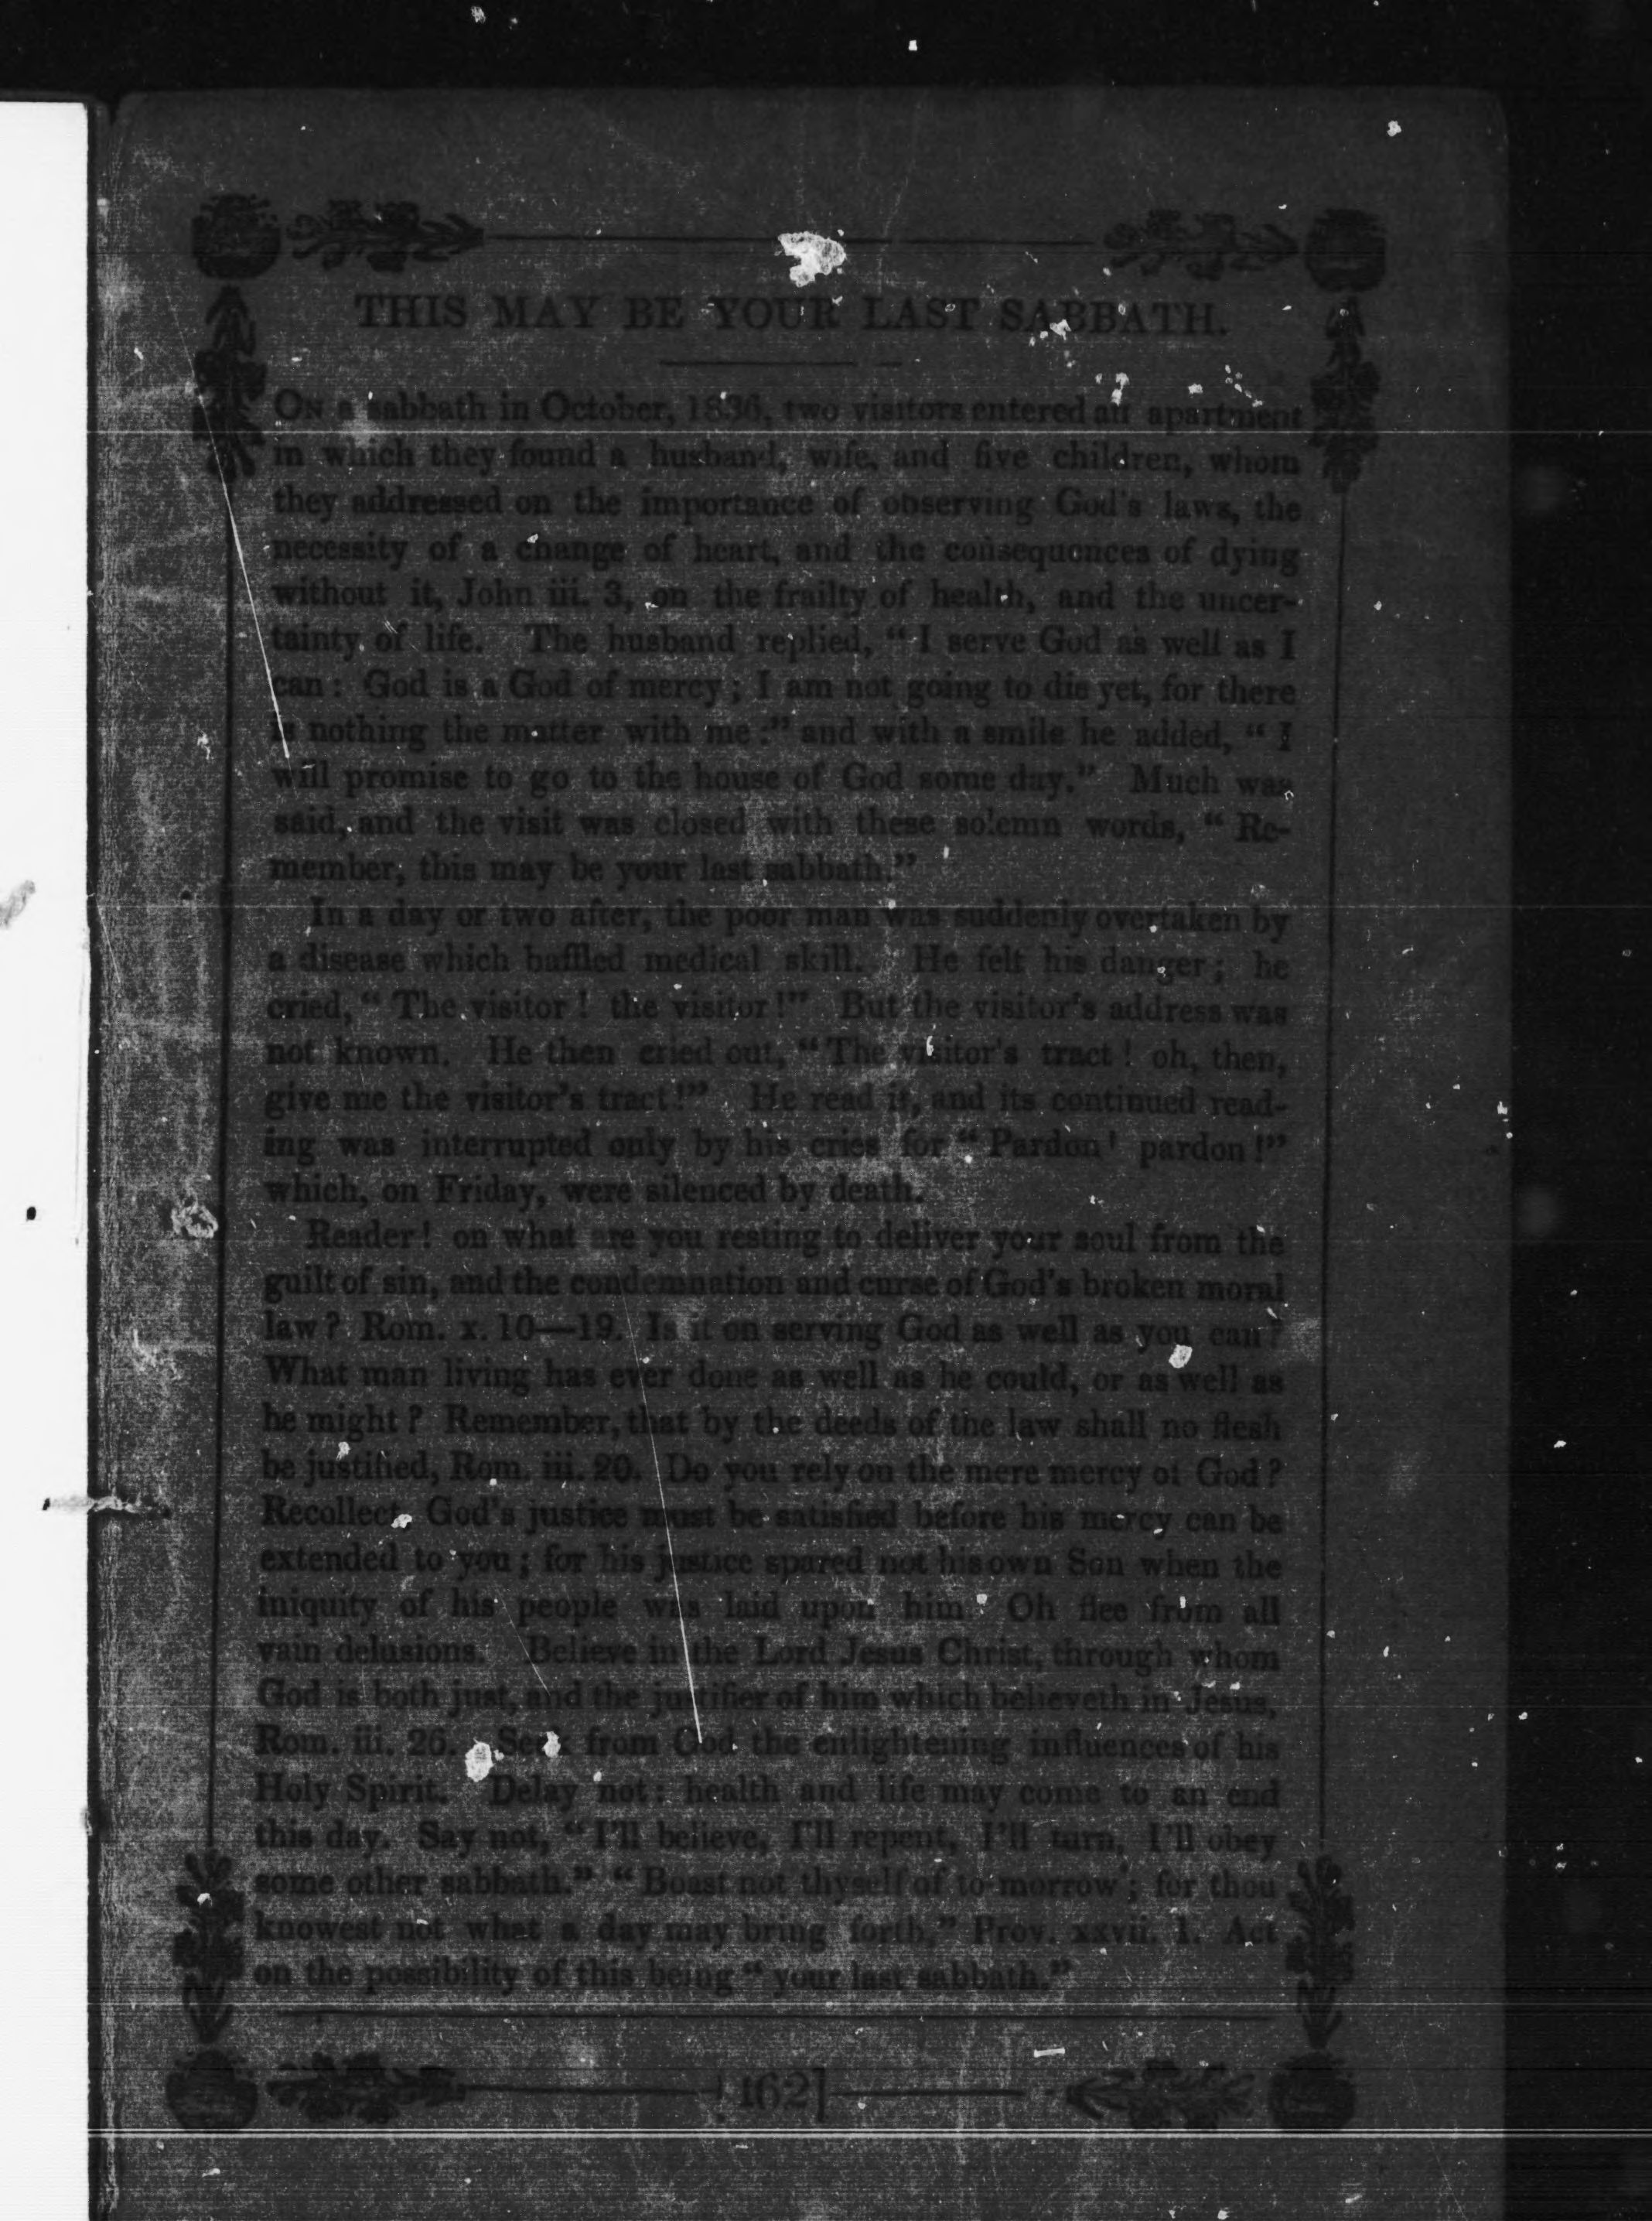 THIS MAY BE YOUR LAST SABBATH.
ON a sabbath in October, 1836, two visitors entered an apartment
in which they found a husband, wife, and five children, whom
they addressed on the importance of observing God's laws, the
necessity of a change of heart, and the consequences of dying
without it, John iii. 3, on the frailty of health, and the uncer-
tainty of life. The husband replied, “ I serve God as well as I
can : God is a God of mercy ; I am not going to die yet, for there
is nothing the matter with me :” and with a smile he added, “ I
will promise to go to the house of God some day.” Much was
said, and the visit was closed with these solemn words, “ Re-
member, this may be your last sabbath.”
In a day or two after, the poor man was suddenly overtaken by
a disease which baffled medical skill. He felt his danger ; he
cried, “ The visitor ! the visitor !” But the visitor's address was
not known. He then cried out, “ The visitor's tract ! oh, then,
give me the visitor's tract !” He read it, and its continued read-
ing was interrupted only by his cries for “ Pardon ! pardon !”
which, on Friday, were silenced by death.
Reader ! on what are you resting to deliver your soul from the
guilt of sin, and the condemnation and curse of God's broken moral
law ? Rom. x. 10—19. Is it on serving God as well as you can ?
What man living has ever done as well as he could, or as well as
he might ? Remember, that by the deeds of the law shall no flesh
be justified, Rom. iii. 20. Do you rely on the mere mercy of God ?
Recollect, God's justice must be satisfied before his mercy can be
extended to you ; for his justice spared not his own Son when the
iniquity of his people was laid upon him. Oh flee from all
vain delusions. Believe in the Lord Jesus Christ, through whom
God is both just, and the justifier of him which believeth in Jesus,
Rom. iii. 26. Seek from God the enlightening influences of his
Holy Spirit. Delay not : health and life may come to an end
this day. Say not, “ I'll believe, I'll repent, I'll turn, I'll obey
some other sabbath.” “ Boast not thyself of to-morrow ; for thou
knowest not what a day may bring forth,” Prov. xxvii. 1. Act
on the possibility of this being “ your last sabbath.”
[162]